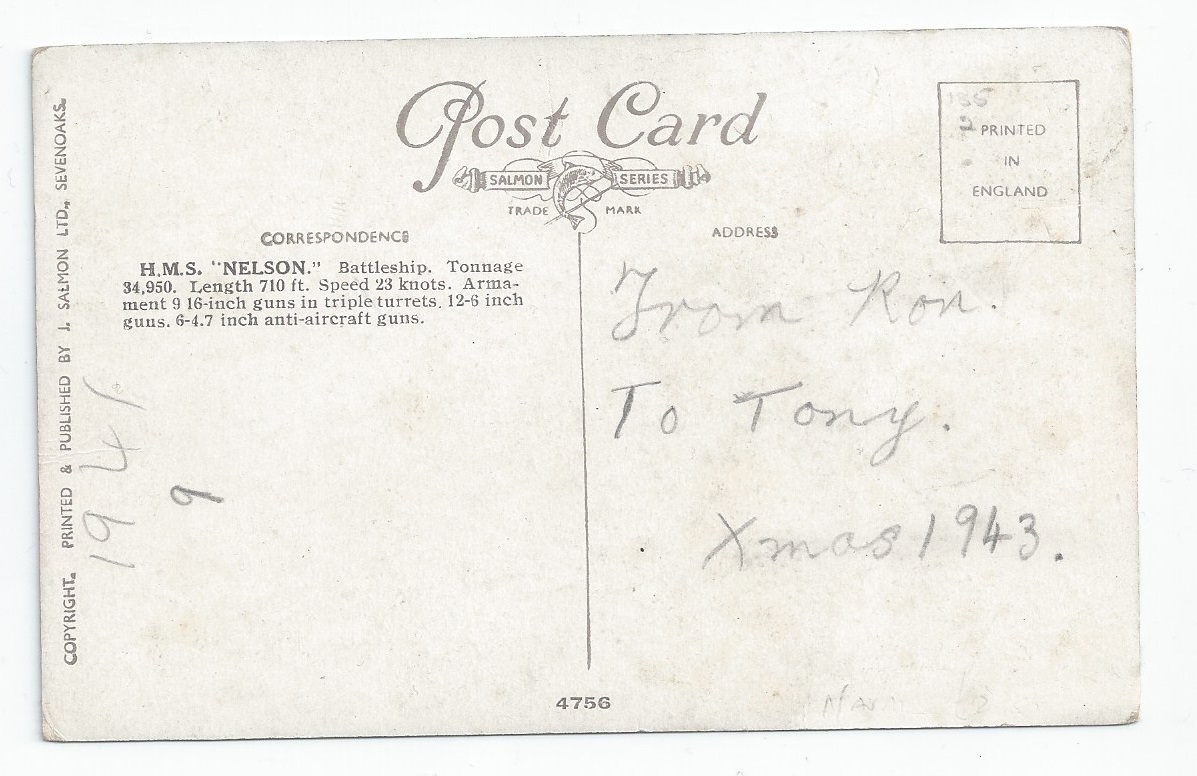 Post Card
SALMON SERIES
TRADE MARK
PRINTED
IN
ENGLAND
CORRESPONDENCE
ADDRESS
H.M.S. "NELSON." Battleship. Tonnage
34,950. Length 710 ft. Speed 23 knots. Arma-
ment 9 16-inch guns in triple turrets. 12-6 inch
guns. 6-4.7 inch anti-aircraft guns.
From Ron.
To Tony.
Xmas 1943.
1941
9
COPYRIGHT. PRINTED & PUBLISHED BY J. SALMON LTD., SEVENOAKS.
4756